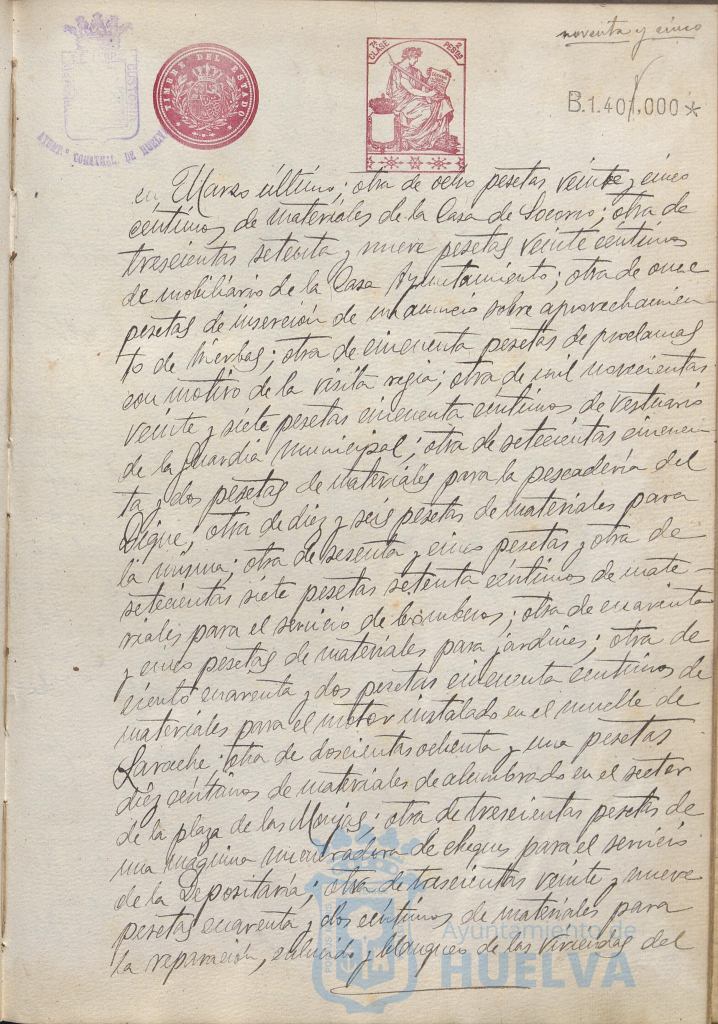 noventa y cinco
TIMBRE DEL ESTADO
7ª CLASE
2 PESETAS
B.1.401,000*
AYUNTº CONSTNAL. DE HUELVA
en Marzo último; otra de ocho pesetas veinte y cinco
céntimos de materiales de la Casa de Socorro; otra de
trescientas setenta y nueve pesetas veinte céntimos
de mobiliario de la Casa Ayuntamiento; otra de once
pesetas de inserción de un anuncio sobre aprovechamien-
to de hierbas; otra de cincuenta pesetas de proclamas
con motivo de la visita regia; otra de mil novecientas
veinte y siete pesetas cincuenta céntimos de vestuario
de la Guardia Municipal; otra de setecientas cincuen-
ta y dos pesetas de materiales para la pescadería del
Dique; otra de diez y seis pesetas de materiales para
la misma; otra de sesenta y cinco pesetas y otra de
setecientas siete pesetas setenta céntimos de mate-
riales para el servicio de bomberos; otra de cuarenta
y cinco pesetas de materiales para jardines; otra de
ciento cuarenta y dos pesetas cincuenta céntimos de
materiales para el motor instalado en el muelle de
Larache; otra de doscientas ochenta y una pesetas
diez céntimos de materiales de alumbrado en el sector
de la plaza de las Monjas; otra de trescientas pesetas de
una máquina numeradora de cheques para el servicio
de la Depositaría; otra de trescientas veinte y nueve
pesetas cuarenta y dos céntimos de materiales para
la reparación, enlucido y blanqueo de las viviendas del
Ayuntamiento de
HUELVA